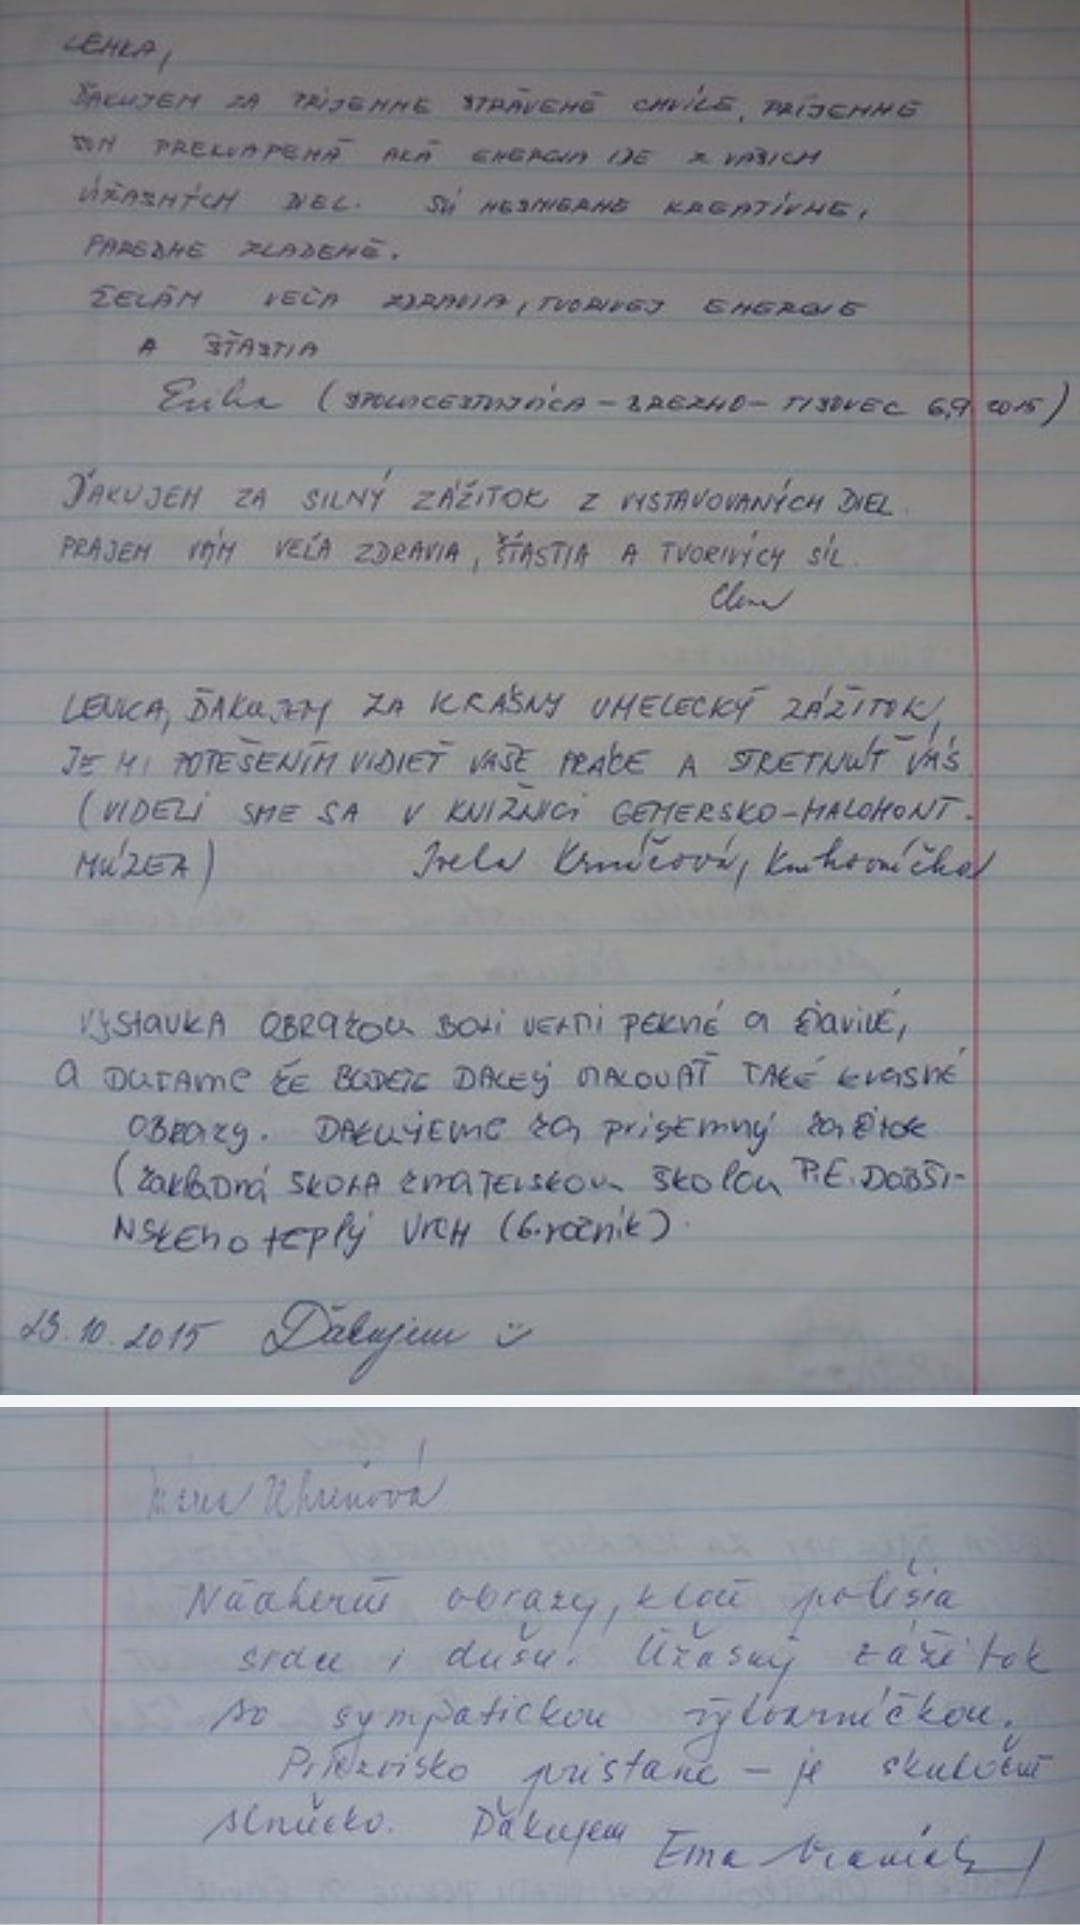 LENKA,
ĎAKUJEM ZA PRÍJEMNE STRÁVENÉ CHVÍLE, PRÍJEMNE
SOM PREKVAPENÁ AKÁ ENERGIA IDE Z VAŠICH
ÚŽASNÝCH DIEL. SÚ NESMIERNE KREATÍVNE,
PARÁDNE ZLADENÉ.
ŽELÁM VEĽA ZDRAVIA, TVORIVEJ ENERGIE
A ŠŤASTIA
Erika (SPOLUCESTUJÚCA - BREZNO - TISOVEC 6.9 2015)
ĎAKUJEM ZA SILNÝ ZÁŽITOK Z VYSTAVOVANÝCH DIEL.
PRAJEM VÁM VEĽA ZDRAVIA, ŠŤASTIA A TVORIVÝCH SÍL.
LENKA, ĎAKUJEM ZA KRÁSNY UMELECKÝ ZÁŽITOK,
JE MI POTEŠENÍM VIDIEŤ VAŠE PRÁCE A STRETNÚŤ VÁS.
(VIDELI SME SA V KNIŽNICI GEMERSKO-MALOHONT.
MÚZEA) Krnáčová, Knihovníčka
VÝSTAVKA OBRAZOU BOLI VEĽMI PEKNÉ a
a DÚFAME ŽE BUDETE ĎALEJ MAĽOVAŤ TAKÉ krásné
OBRAZY. ĎAKUJEME za príjemný zážitok
(základná ŠKOLA zMATERSKOU školou P.E. DOBŠI-
NSKEHO teplý VRCH (6.ročník).
23.10.2015 Ďakujem :)
Uhrinová
Nádherné obrazy, ktoré potešia
srdce i dušu. Úžasný zážitok
so sympatickou výtvarníčkou.
Priezvisko pristane - je skutočné
slniečko. Ďakujem Ema